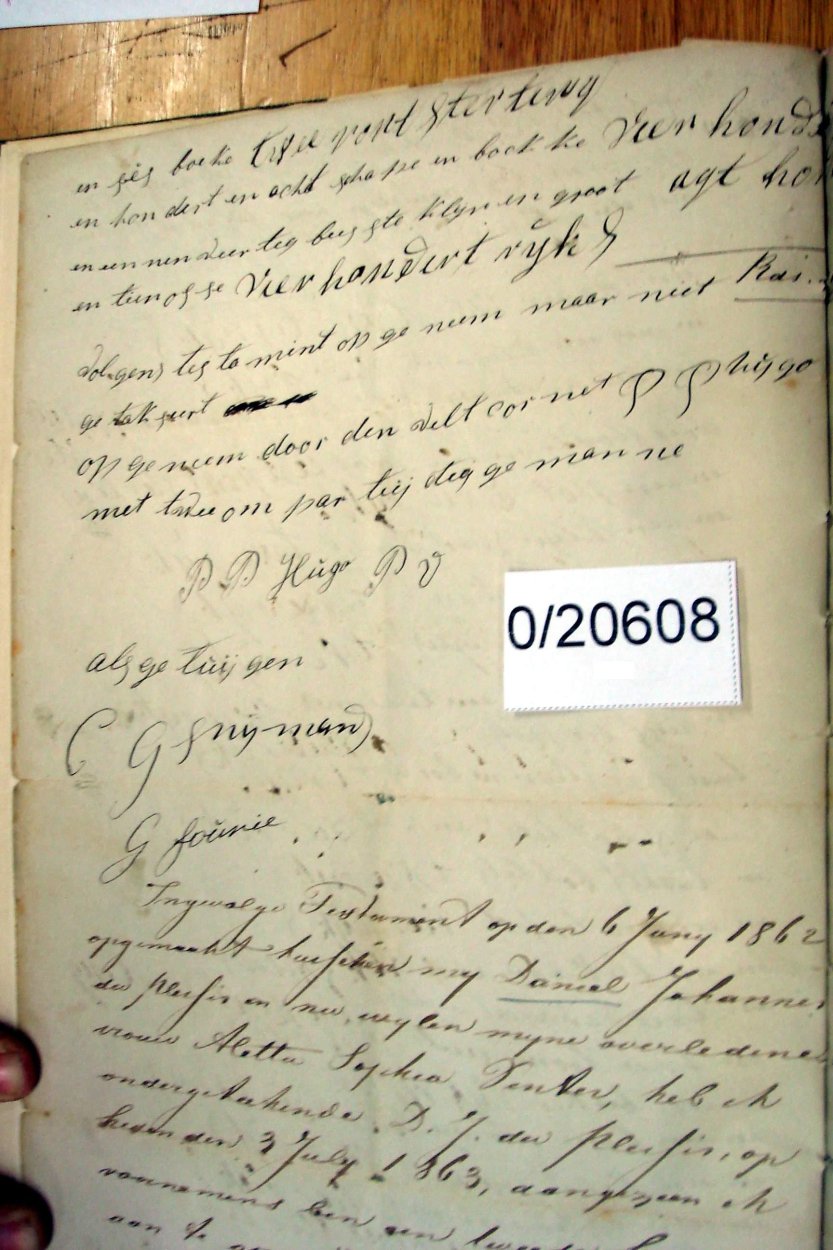 en ses boeke twee pont sterling
en hondert en acht schape en bockke vier hond
en een en veerteg beeste klyn en groot agt hon
en tien osse vier hondert ryks
volgens testament op ge neem maar niet
ge takseert
op ge neem door den velt cornet P P Hugo
met twee om par tij deg ge man ne
P P Hugo P V
als ge tuij gen
C G Snyman
G fourie
0/20608
Ingevolge Testament op den 6 Juny 1862
opgemaakt tusschen my Daniel Johannes
du Plessis en nu wylen myne overledene
vrouw Aletta Sophia Venter, heb ik
ondergetekende D. J. du Plessis, op
heden den 3 July 1863, aangezien ik
voornemens ben een tweede
aan te